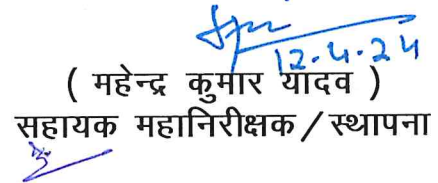 12.4.24
( महेन्द्र कुमार यादव )
सहायक महानिरीक्षक / स्थापना